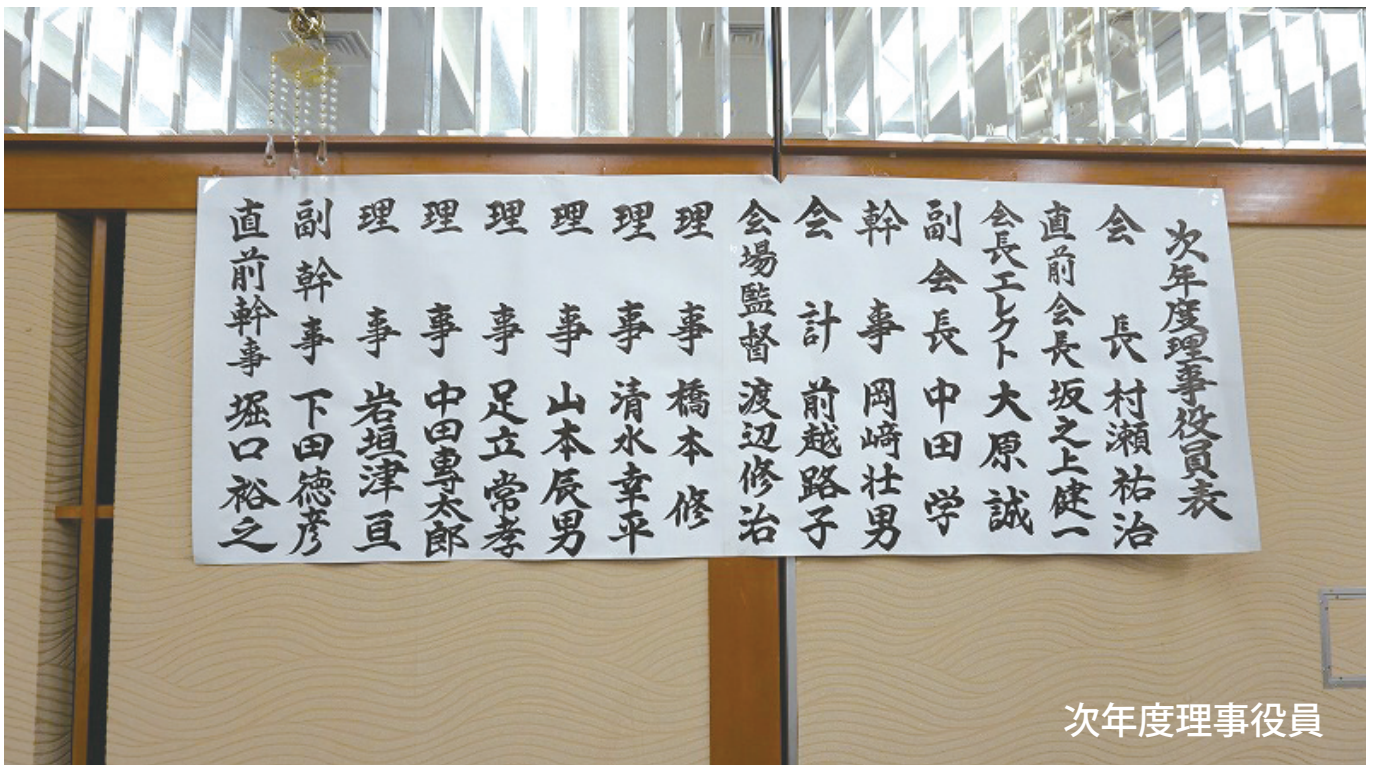 次年度理事役員表
会長 村瀬祐治
直前会長 坂之上健一
会長エレクト 大原誠
副会長 中田学
幹事 岡﨑壮男
会計 前越路子
会場監督 渡辺修治
理事 橋本修
理事 清水幸平
理事 山本辰男
理事 足立常孝
理事 中田專太郎
理事 岩垣津亘
副幹事 下田徳彦
直前幹事 堀口裕之
次年度理事役員